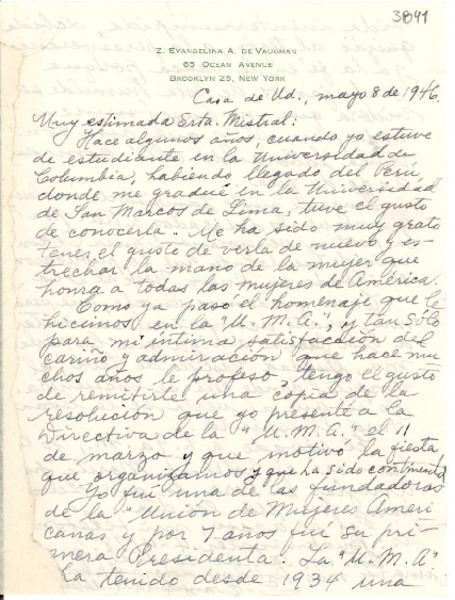 3841
Z. EVANGELINA A. DE VAUGHAN
65 OCEAN AVENUE
BROOKLYN 25, NEW YORK
Casa de Ud., mayo 8 de 1946.
Muy estimada Srta. Mistral:
Hace algunos años, cuando yo estuve
de estudiante en la Universidad de
Columbia, habiendo llegado del Perú,
donde me gradué en la Universidad
de San Marcos de Lima, tuve el gusto
de conocerla. Me ha sido muy grato
tener el gusto de verla de nuevo y es-
trechar la mano de la mujer que
honra a todas las mujeres de América.
Como ya pasó el homenaje que le
hicimos en la "U.M.A.", y tan sólo
para mi íntima satisfacción del
cariño y admiración que hace mu
chos años le profeso, tengo el gusto
de remitirle una copia de la
resolución que yo presenté a la
Directiva de la "U.M.A." el 11
de marzo y que motivó la fiesta
que organizamos y que ha sido
Yo fuí una de las fundadoras
de la "Unión de Mujeres Ameri
canas y por 7 años fuí su pri-
mera Presidenta. La "U.M.A"
ha tenido desde 1934 una